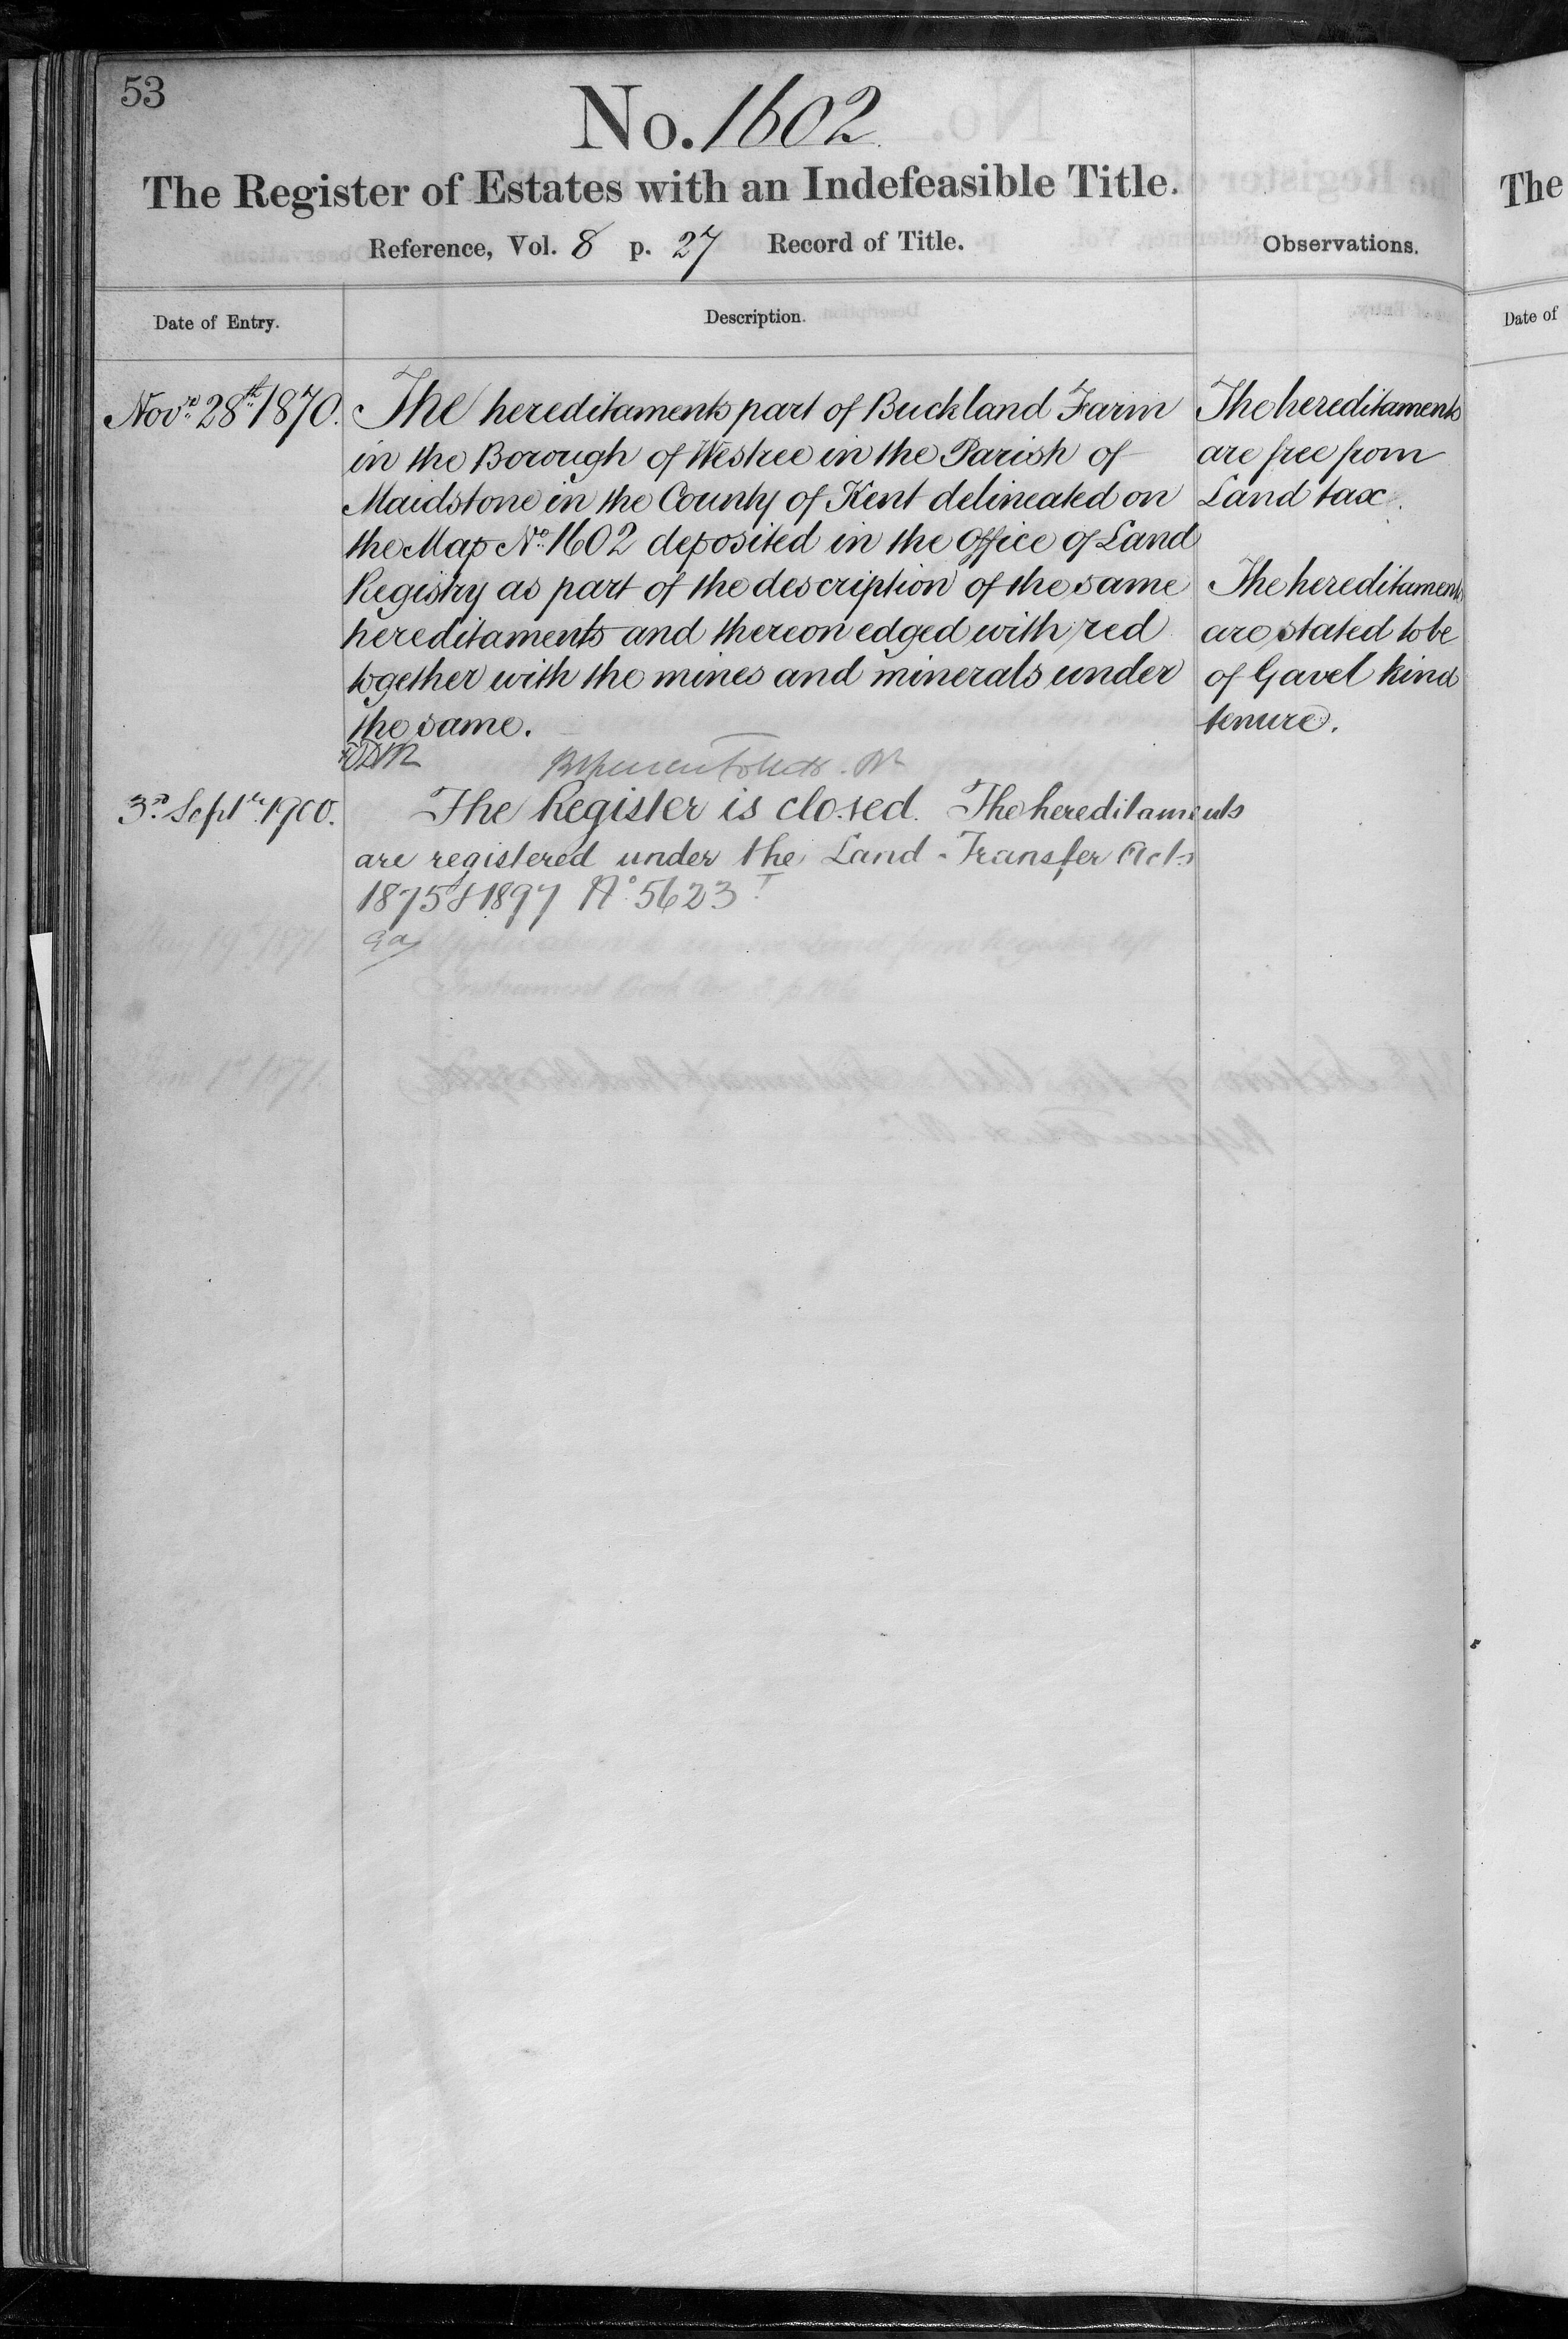 53
No. 1602
The Register of Estates with an Indefeasible Title.
Reference, Vol. 8 p. 27 Record of Title.
Observations.
Date of Entry.
Description.
Novr. 28th. 1870.
The hereditaments part of Buckland Farm
in the Borough of Westree in the Parish of
Maidstone in the County of Kent delineated on
the Map No. 1602 deposited in the Office of Land
Registry as part of the description of the same
hereditaments and thereon edged with red
together with the mines and minerals under
the same.
The hereditaments
are free from
Land tax.
The hereditaments
are stated to be
of Gavel kind
tenure.
3rd. Septr. 1900.
The Register is closed. The hereditaments
are registered under the Land Transfer Acts
1875 & 1897 No. 5623
The
Date of